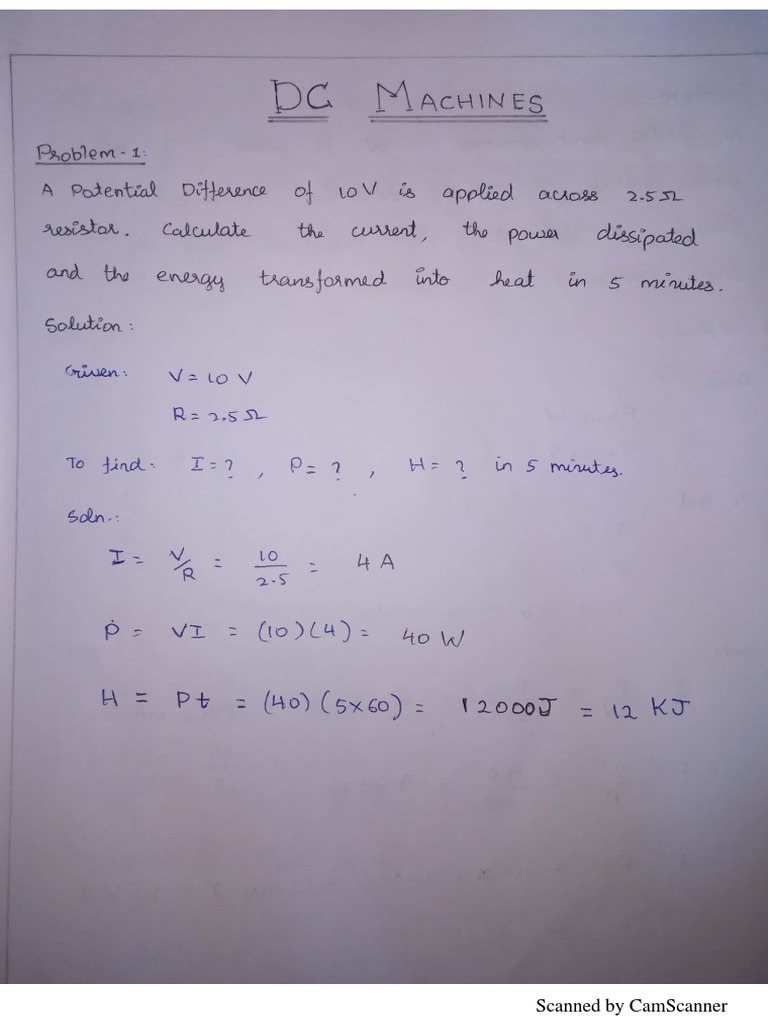 DC MACHINES
Problem-1:
A Potential Difference of 10V is applied across 2.5Ω
resistor. Calculate the current, the power dissipated
and the energy transformed into heat in 5 minutes.
Solution:
Given: V = 10 V
R = 2.5 Ω
To find: I = ? , P = ? , H = ? in 5 minutes.
Soln.:
I = V/R = 10/2.5 = 4 A
P = VI = (10)(4) = 40 W
H = Pt = (40)(5×60) = 12000J = 12 KJ
Scanned by CamScanner